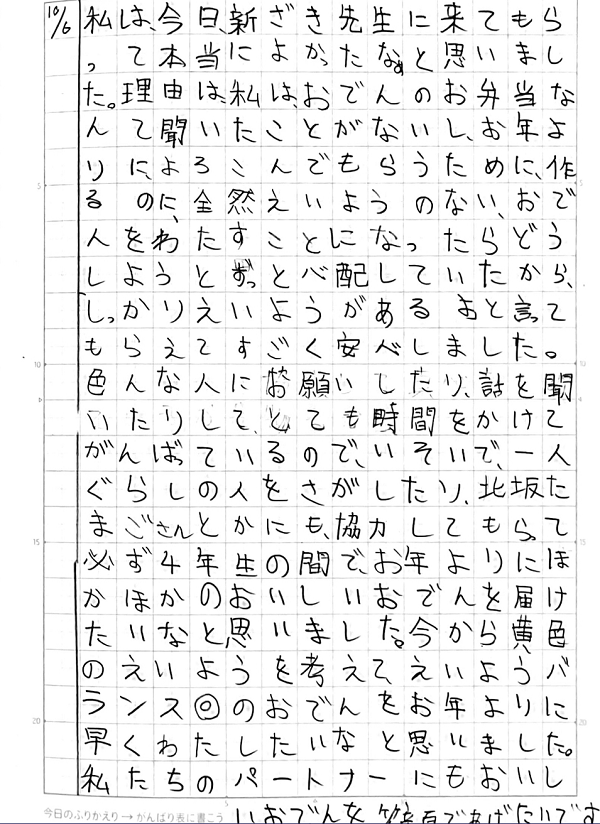 10/6 私は、今日、新ざき先生に来てもら
って本当によかったなぁと思いまし
た。理由は、私は、おでんのお弁当な
んて聞いたことがないし、お年よ
りに、よろこんでもらうために、作
るのに、全然えいようのない、おで
んをわたすことになったらどう
しようとずっと心配していたから、
しっかりえいようがあるよと言って
もらえてすごく安心しました。
色んな人にお願いしたり、話を聞
いたりして、とても時間をかけて
がんばっているので、いそいで、一人
ぐらしの人をさがしたり、北坂た
まごさんとかにも、協力してもらって
必ず4年生の間で、お年よりにほ
かほかのおいしいおでんを届け
たいなと思いました。今から黄色
のえいようを考えて、えいようバ
ランス◎のおでんをお年よりに
早くわたしたいなと思いました。
私たちのパートナーにもおいし
今日のふりかえり→がんばり表に書こう いおでんを